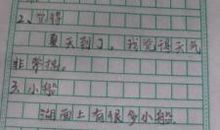 2、觉得
夏天到了，我觉得天气
非常热。
3、小船
湖面上有很多小船